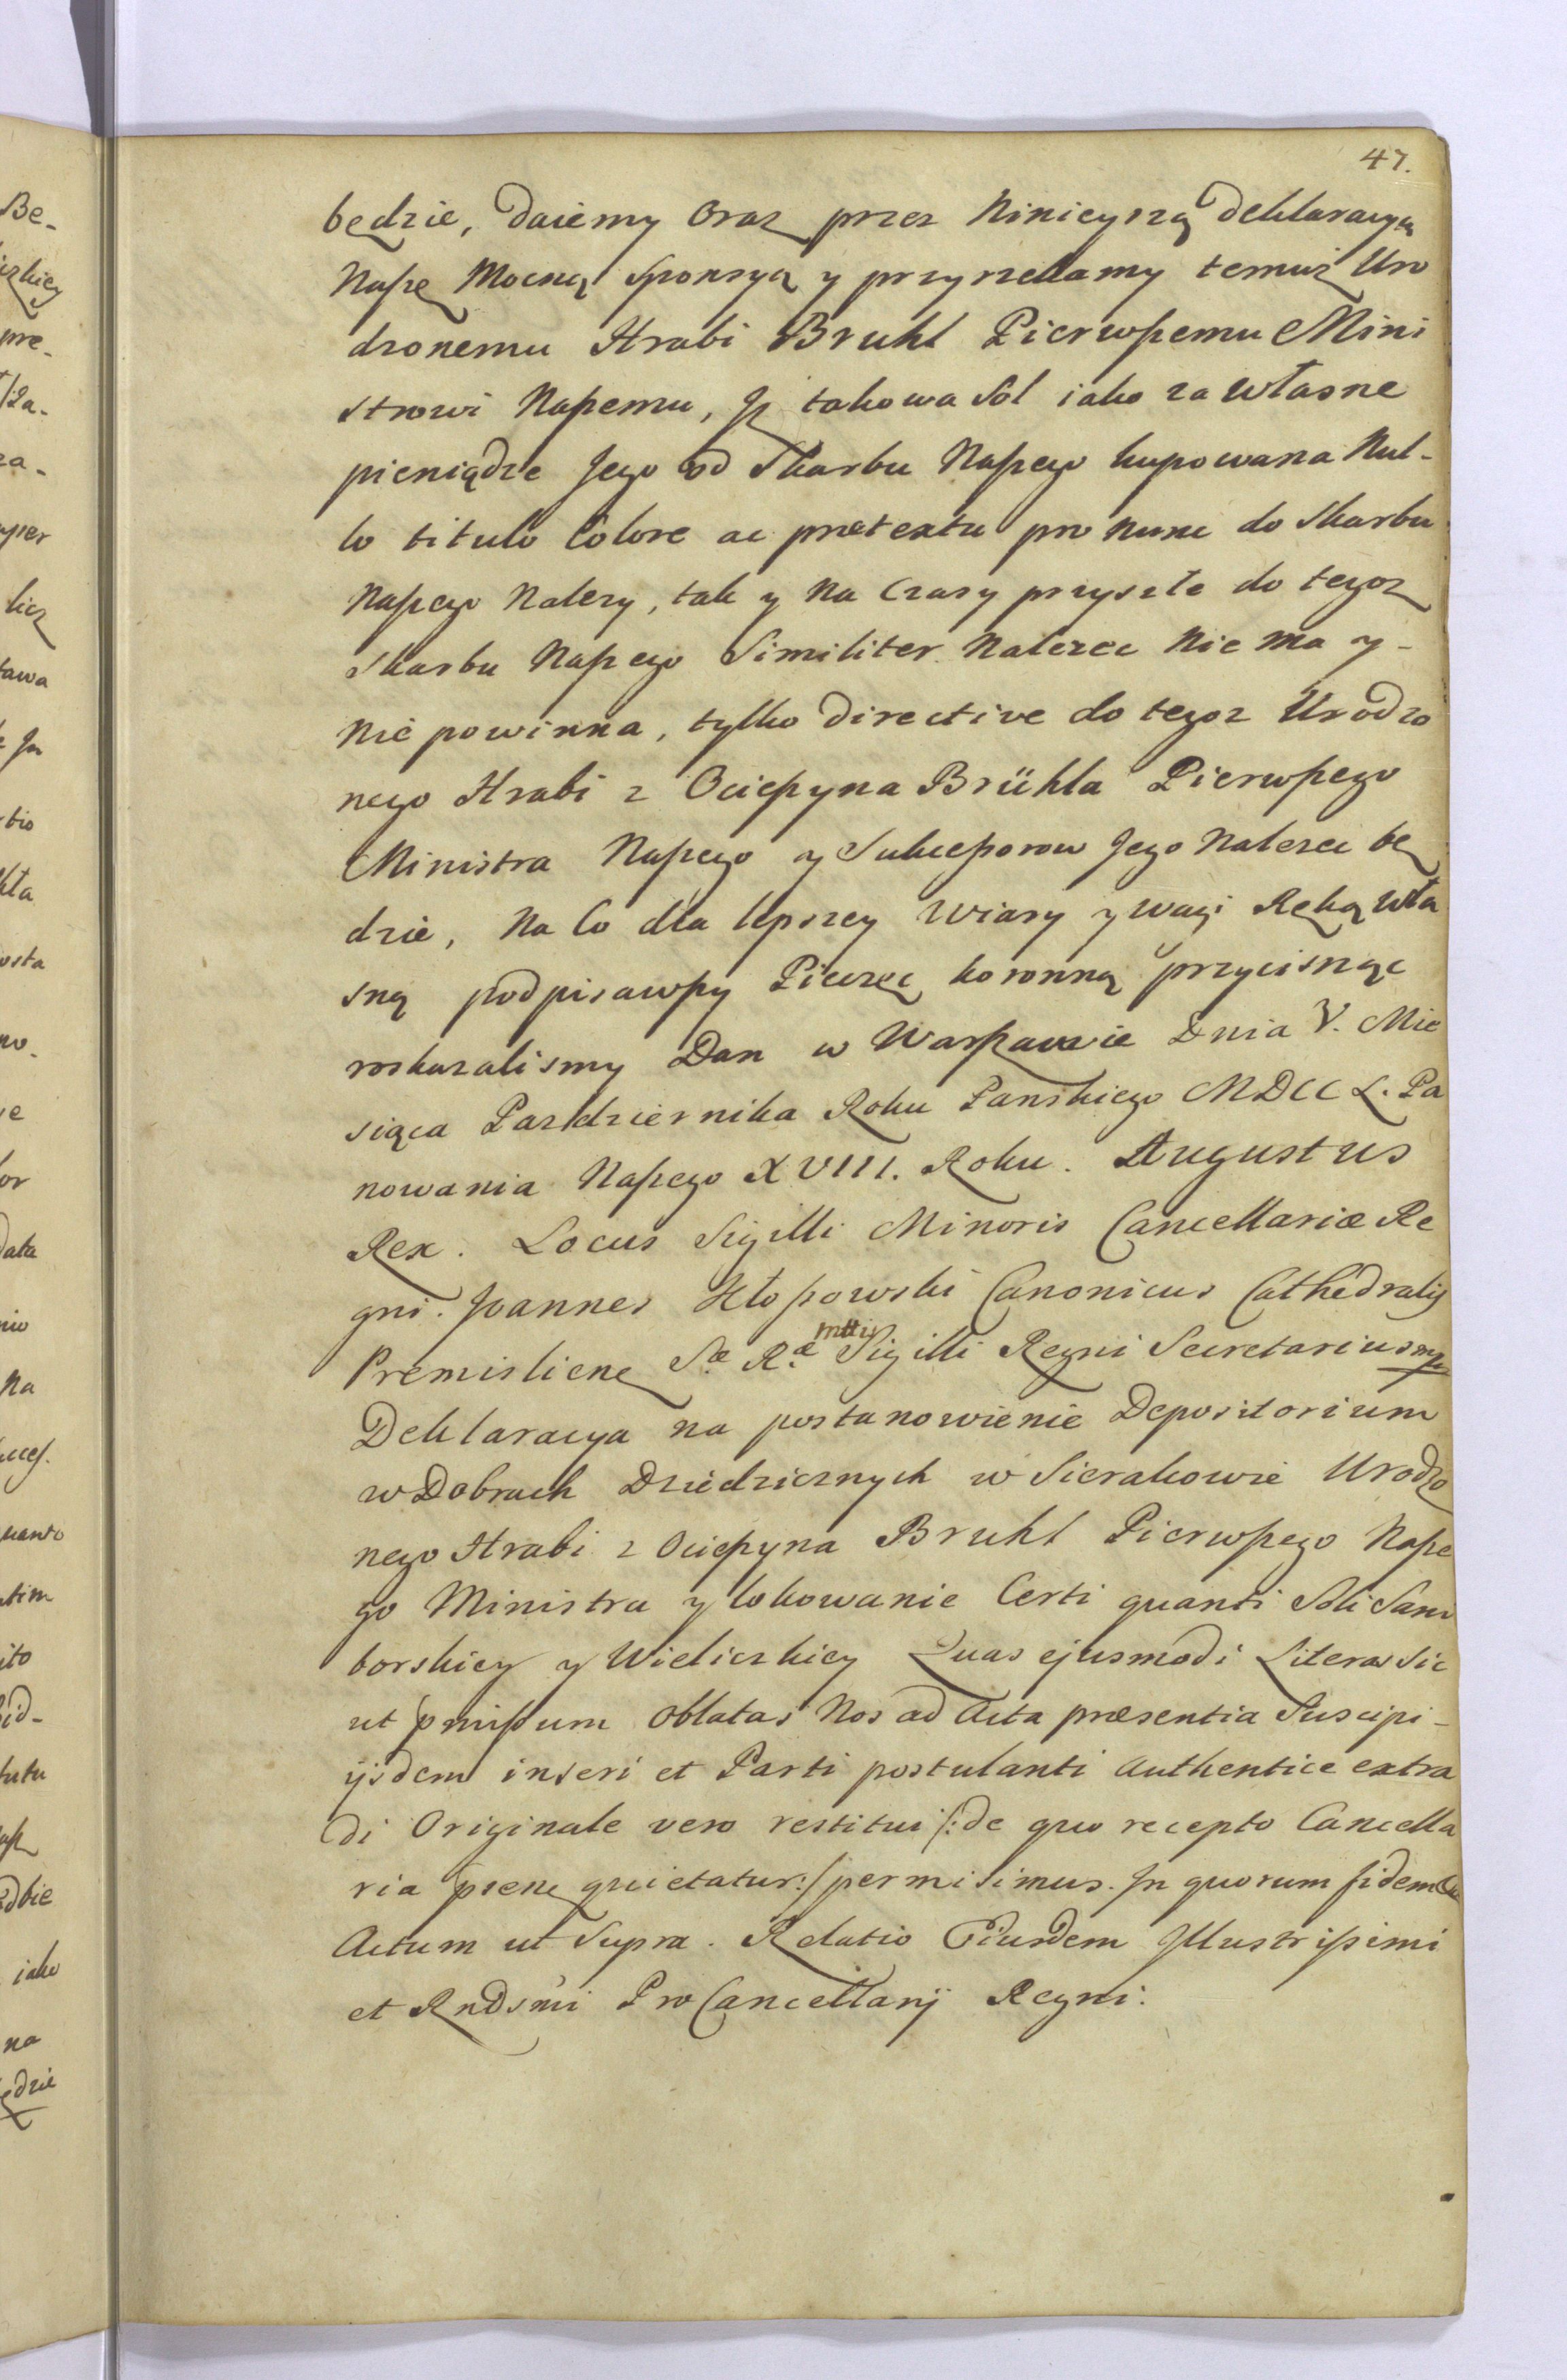 47.
będzie, daiemy oraz przez Ninieyszą deklaracyą
Naszę Mocną Sponsyą y przyrzekamy temuż Uro
dzonemu Hrabi Bruhl Pierwszemu Mini
strowi Naszemu, Jż takowa Sol iako za własne
pieniądze Jego od Skarbu Naszego kupowana Nul-
lo titulo Colore ac prætextu pro nunc do Skarbu
Naszego Nalezy, tak y Na Czasy przyszłe do tegoz
Skarbu Naszego Similiter Nalezec Nie ma y-
nie powinna, tylko directive do tegoz Urodzo
nego Hrabi z Ocieszyna Brühla Pierwszego
Ministra Naszego y Sukcessorow Jego Nalezec bę
dzie, Na Co dla lepszey Wiary y wagi Ręką wła
sną podpisawszy Pieczęc koronną przycisnąc
roskazalismy Dan w Warszawie Dnia V. Mie
siąca Pazdziernika Roku Panskiego MDCCL. Pa
nowania Naszego XVIII. Roku. Augustus
Rex. Locus Sigilli Minoris Cancellariæ Re
gni. Joannes Kłossowski Canonicus Cathedralis
Premisliene Sæ Ræ Mttis Sigilli Regni Secretarius mp
Deklaracya na postanowienie Depositorium
w Dobrach Dziedzicznych w Sierakowie Urodzo
nego Hrabi z Ocieszyna Bruhl Pierwszego Nasze
go Ministra y lokowanie Certi quanti Soli Sam
borskiey y Wieliczkiey Quas ejusmodi Literas sic
ut pmissum oblatas Nos ad Acta præsentia Suscipi-
ijsdem inseri et Parti postulanti Authentice extra
di Originale vero restitui /: de quo recepto Cancella
ria psene quietatur :/ permisimus. In quorum fidem
Actum ut Supra. Relatio Eiusdem Jllustrissimi
et Rndsmi ProCancellarij Regni.